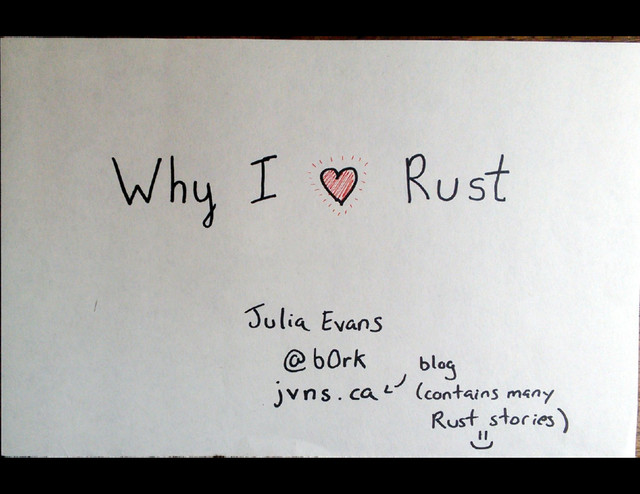 Why I ♥ Rust
Julia Evans
@b0rk
jvns.ca
blog
(contains many
Rust stories)